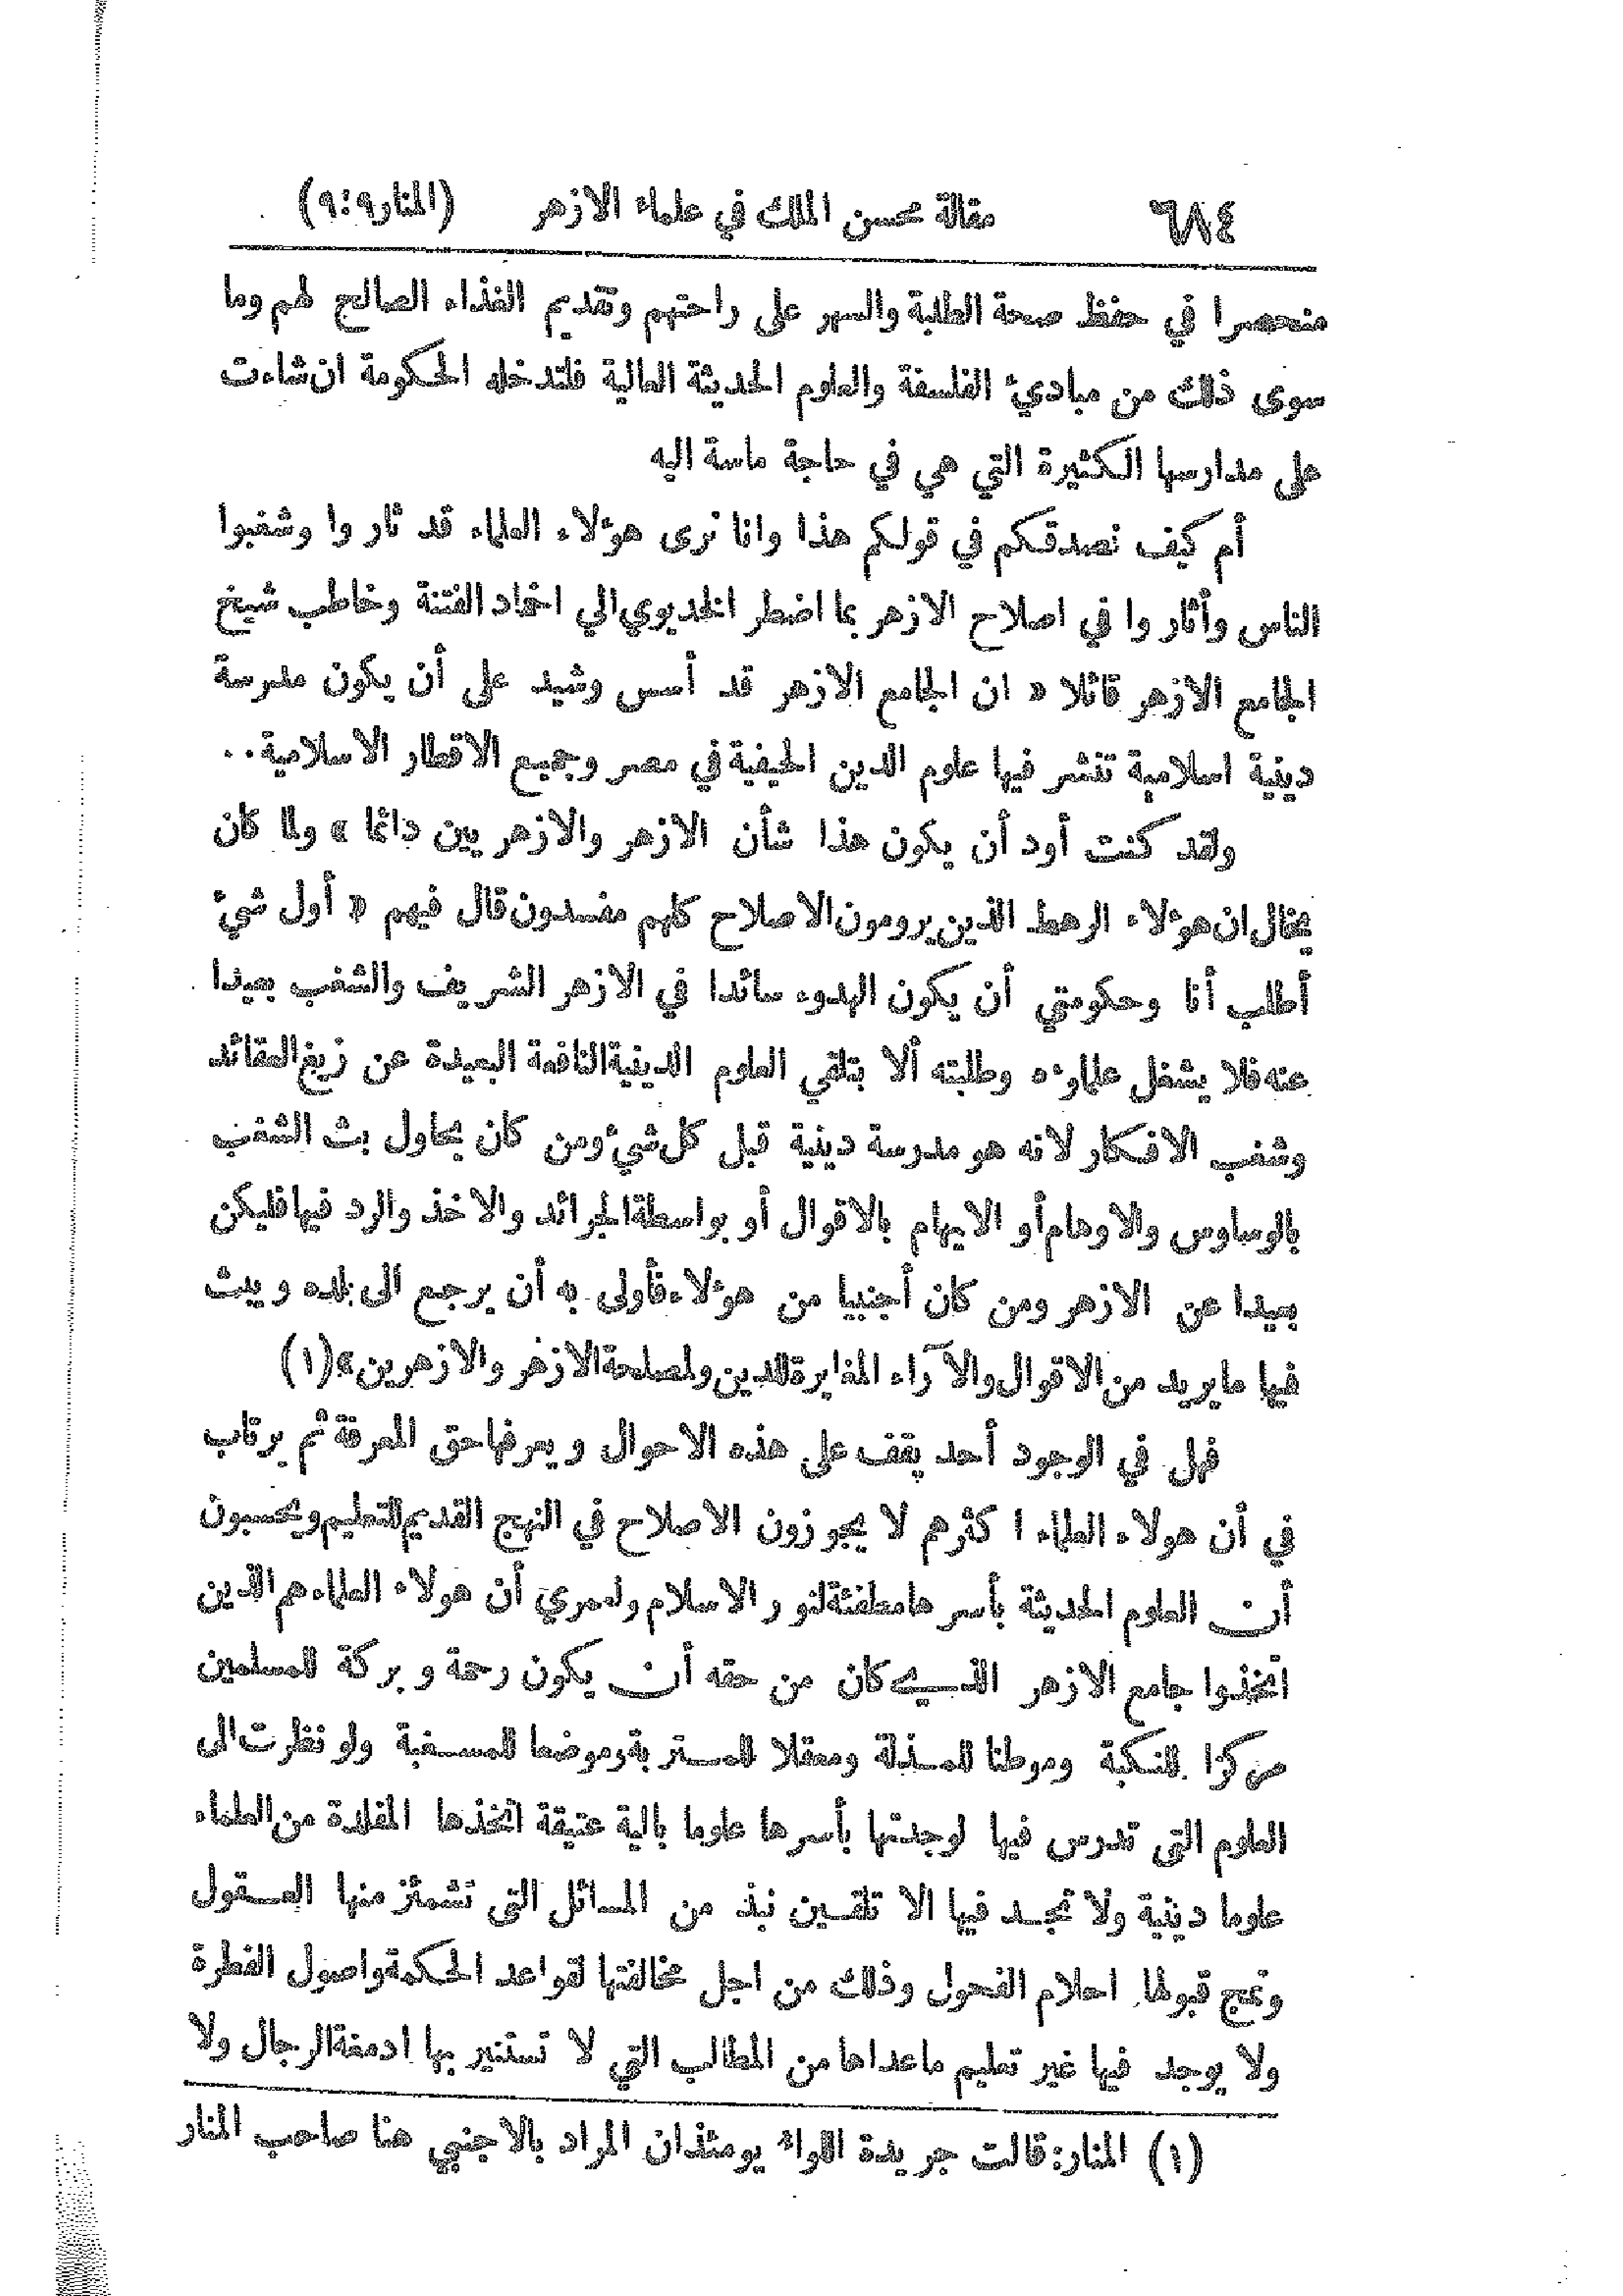 ٦٨٤ مقالة محسن الملك في علماء الازهر (المنار٩:٩)
منحصرا في حفظ صحة الطلبة والسهر على راحتهم وتقديم الغذاء الصالح لهم وما
سوى ذلك من مباديء الفلسفة والعلوم الحديثة العالية فلتدخله الحكومة ان شاءت
على مدارسها الكثيرة التي هي في حاجة ماسة اليه
أم كيف نصدقكم في قولكم هذا وانا نرى هؤلاء العلماء قد ثاروا وشغبوا
الناس وأثاروا في اصلاح الازهر بما اضطر الخديوي الي اخماد الفتنة وخاطب شيخ
الجامع الازهر قائلا « ان الجامع الازهر قد أسس وشيد على أن يكون مدرسة
دينية اسلامية تنشر فيها علوم الدين الحيفية في مصر وجميع الاقطار الاسلامية..
ولقد كنت أود أن يكون هذا شأن الازهر والازهريين دائما » ولما كان
يخال ان هؤلاء الرهط الذين يرومون الاصلاح كلهم مفسدون قال فيهم « أول شيء
أطلب أنا وحكومتي أن يكون الهدوء سائدا في الازهر الشريف والشغب بعيدا
عنه فلا يشغل علماؤه وطلبته ألا بتلقي العلوم الدينية النافعة البعيدة عن زيغ العقائد
وشغب الافكار لانه هو مدرسة دينية قبل كل شيء ومن كان يحاول بث الشغب
بالوساوس والاوهام أو الايهام بالاقوال أو بواسطة الجرائد والاخذ والرد فيها فليكن
بعيدا عن الازهر ومن كان أجنبيا من هؤلاء فأولى به أن يرجع الى بلده ويبث
فيها ما يريد من الاقوال والآراء المغايرة للدين ولمصلحة الازهر والازهريين» (١)
فهل في الوجود أحد يقف على هذه الاحوال ويعرفها حق المعرفة ثم يرتاب
في أن هولاء العلماء اكثرهم لا يجوزون الاصلاح في النهج القديم للتعليم ويحسبون
أن العلوم الحديثة بأسرها مطفئة لنور الاسلام ولعمري أن هولاء العلماء هم الذين
اتخذوا جامع الازهر الذي كان من حقه أن يكون رحمة وبركة للمسلمين
مركزا للنكبة وموطنا للمذلة ومعقلا للمتربة وموضعا للمسغبة ولو نظرت الى
العلوم التى تدرس فيها لوجدتها بأسرها علوما بالية عتيقة اتخذها المقلدة من العلماء
علوما دينية ولا تجد فيها الا تلقين نبذ من المسائل التى تشمئز منها العقول
وتمج قبولها احلام الفحول وذلك من اجل مخالفتها لقواعد الحكمة واصول الفطرة
ولا يوجد فيها غير تعليم ماعداها من المطالب التي لا تستنير بها ادمغة الرجال ولا
(١) المنار: قالت جريدة اللواء يومئذ ان المراد بالاجنبي هنا صاحب المنار